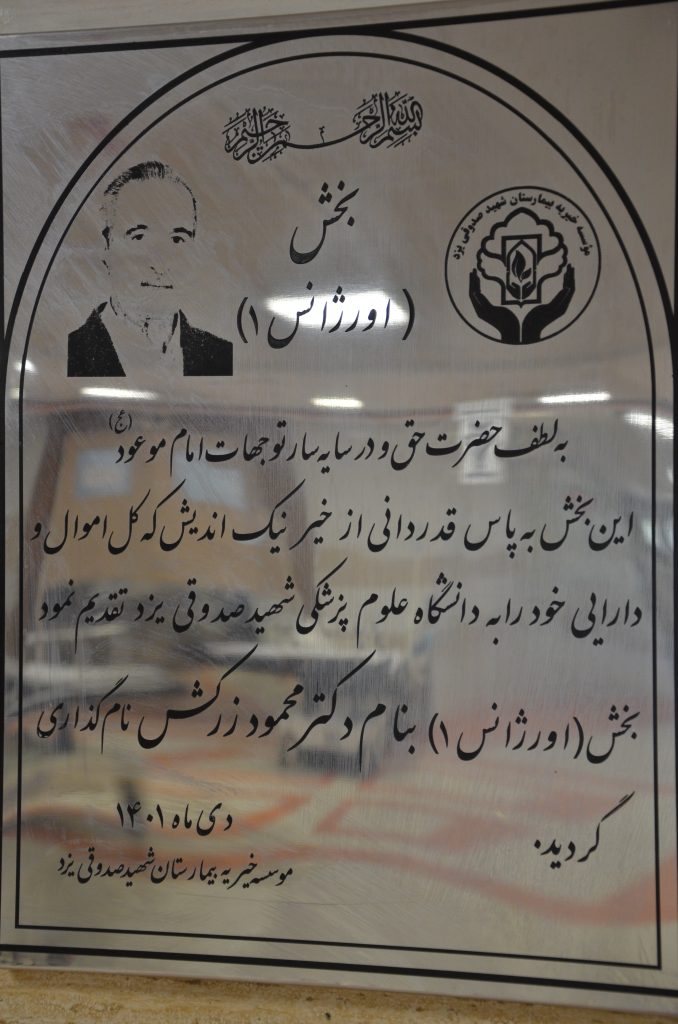 بسم الله الرحمن الرحیم
موسسه خیریه بیمارستان شهید صدوقی یزد
بخش
(اورژانس ۱)
به لطف حضرت حق و در سایه سار توجهات امام موعود (عج)
این بخش به پاس قدردانی از خیر نیک اندیش که کل اموال و
دارایی خود را به دانشگاه علوم پزشکی شهید صدوقی یزد تقدیم نمود
بخش (اورژانس ۱) بنام دکتر محمود زرکش نام گذاری
گردید.
دی ماه ۱۴۰۱
موسسه خیریه بیمارستان شهید صدوقی یزد